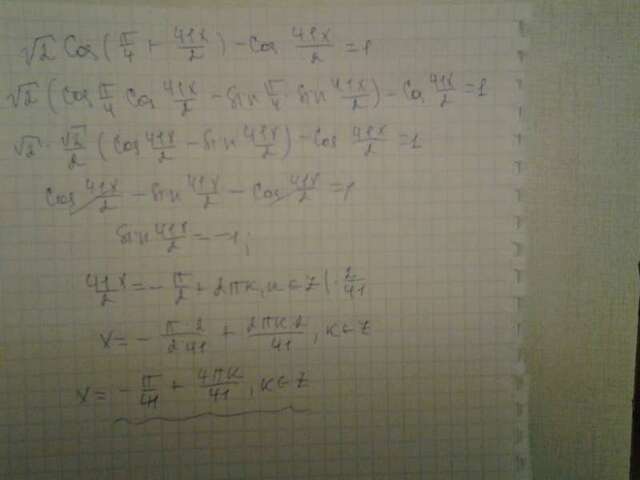 √2 Cos(π/4 + 41x/2) - Cos 41x/2 = 1
√2 (Cos π/4 Cos 41x/2 - Sin π/4 · Sin 41x/2) - Cos 41x/2 = 1
√2 · √2/2 (Cos 41x/2 - Sin 41x/2) - Cos 41x/2 = 1
Cos 41x/2 - Sin 41x/2 - Cos 41x/2 = 1
Sin 41x/2 = -1;
41x/2 = - π/2 + 2πk, k ∈ Z | · 2/41
x = - π·2/2·41 + 2πk·2/41, k ∈ Z
x = - π/41 + 4πk/41, k ∈ Z